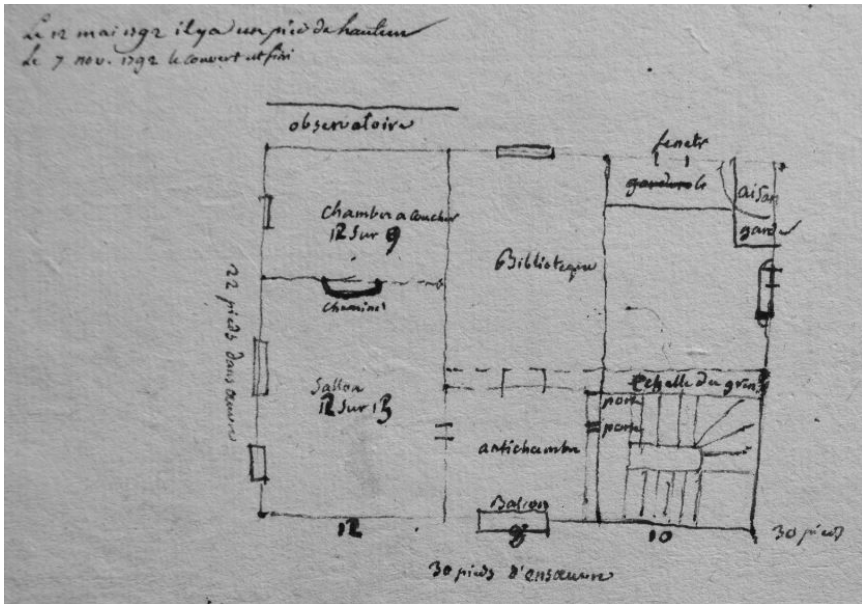 Le 12 mai 1792 il y a un pied de hauteur
Le 7 nov. 1792 le couvert est fini
observatoire
fenetr
garderob
aisan
garde
Chambre a coucher
12 sur 9
Biblioteque
cheminé
22 pieds dans œuvre
Sallon
12 sur 13
Echelle du gren
porte
porte
antichambre
Balcon
12
9
10
30 pieds
30 pieds d'ansœuvre